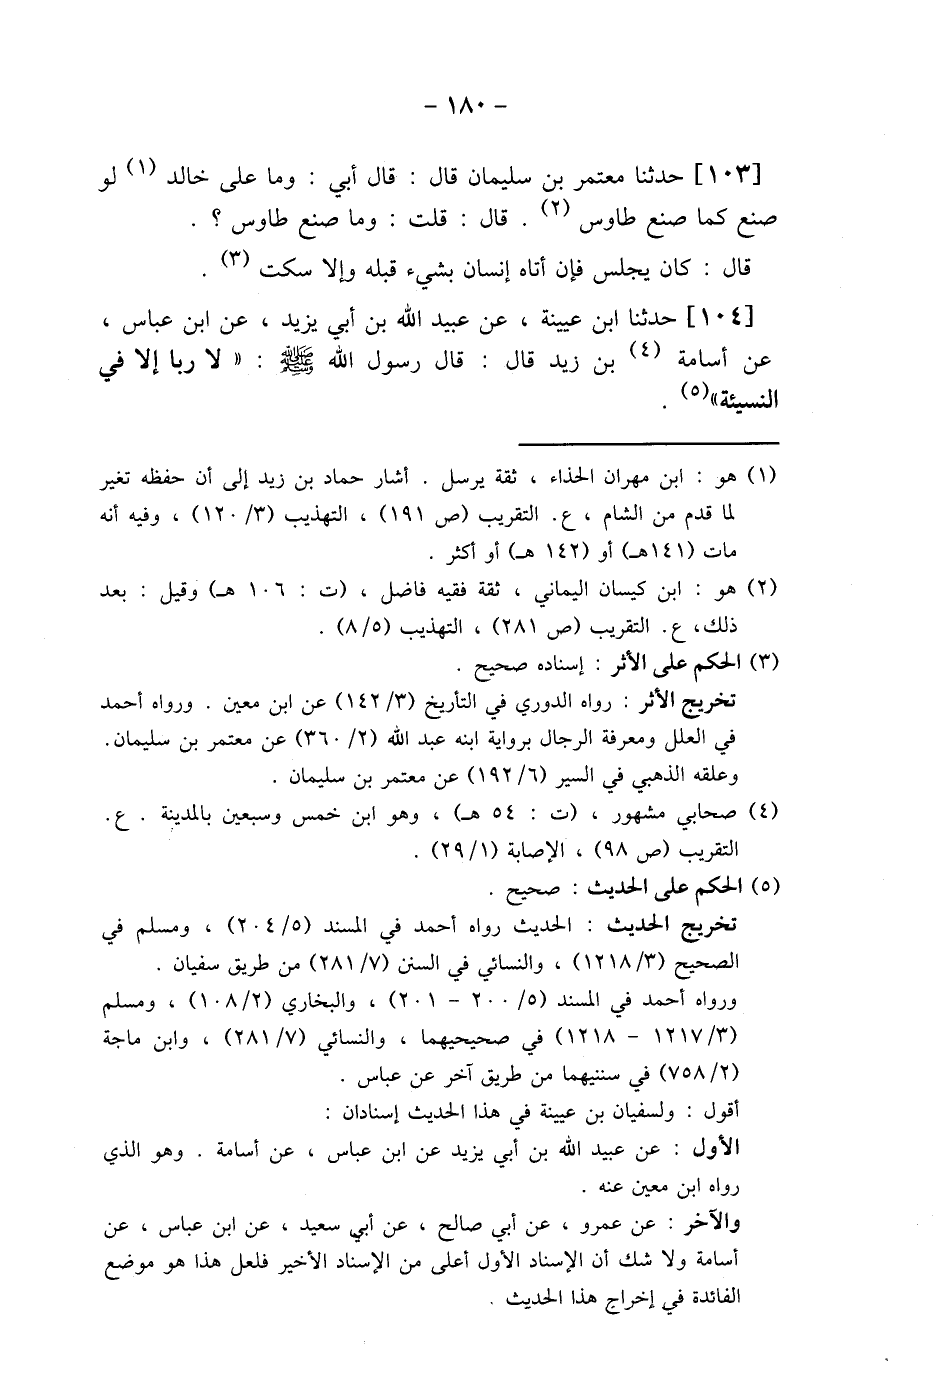 – ١٨٠ –
[١٠٣] حدثنا معتمر بن سليمان قال : قال أبي : وما على خالد (١) لو
صنع كما صنع طاوس (٢) . قال : قلت : وما صنع طاوس ؟ .
قال : كان يجلس فإن أتاه إنسان بشيء قبله وإلا سكت (٣) .
[١٠٤] حدثنا ابن عيينة ، عن عبيد الله بن أبي يزيد ، عن ابن عباس ،
عن أسامة (٤) بن زيد قال : قال رسول الله ﷺ : « لا ربا إلا في
النسيئة»(٥) .
(١) هو : ابن مهران الحذاء ، ثقة يرسل . أشار حماد بن زيد إلى أن حفظه تغير
لما قدم من الشام ، ع. التقريب (ص ١٩١) ، التهذيب (٣/ ١٢٠) ، وفيه أنه
مات (١٤١هـ) أو (١٤٢ هـ) أو أكثر .
(٢) هو : ابن كيسان اليماني ، ثقة فقيه فاضل ، (ت : ١٠٦ هـ) وقيل : بعد
ذلك، ع. التقريب (ص ٢٨١) ، التهذيب (٥/ ٨) .
(٣) الحكم على الأثر : إسناده صحيح .
تخريج الأثر : رواه الدوري في التأريخ (٣/ ١٤٢) عن ابن معين . ورواه أحمد
في العلل ومعرفة الرجال برواية ابنه عبد الله (٢/ ٣٦٠) عن معتمر بن سليمان.
وعلقه الذهبي في السير (٦/ ١٩٢) عن معتمر بن سليمان .
(٤) صحابي مشهور ، (ت : ٥٤ هـ) ، وهو ابن خمس وسبعين بالمدينة . ع.
التقريب (ص ٩٨) ، الإصابة (١/ ٢٩) .
(٥) الحكم على الحديث : صحيح .
تخريج الحديث : الحديث رواه أحمد في المسند (٥/ ٢٠٤) ، ومسلم في
الصحيح (٣/ ١٢١٨) ، والنسائي في السنن (٧/ ٢٨١) من طريق سفيان .
ورواه أحمد في المسند (٥/ ٢٠٠ – ٢٠١) ، والبخاري (٢/ ١٠٨) ، ومسلم
(٣/ ١٢١٧ – ١٢١٨) في صحيحيهما ، والنسائي (٧/ ٢٨١) ، وابن ماجة
(٢/ ٧٥٨) في سننيهما من طريق آخر عن عباس .
أقول : ولسفيان بن عيينة في هذا الحديث إسنادان :
الأول : عن عبيد الله بن أبي يزيد عن ابن عباس ، عن أسامة . وهو الذي
رواه ابن معين عنه .
والآخر : عن عمرو ، عن أبي صالح ، عن أبي سعيد ، عن ابن عباس ، عن
أسامة ولا شك أن الإسناد الأول أعلى من الإسناد الأخير فلعل هذا هو موضع
الفائدة في إخراج هذا الحديث .